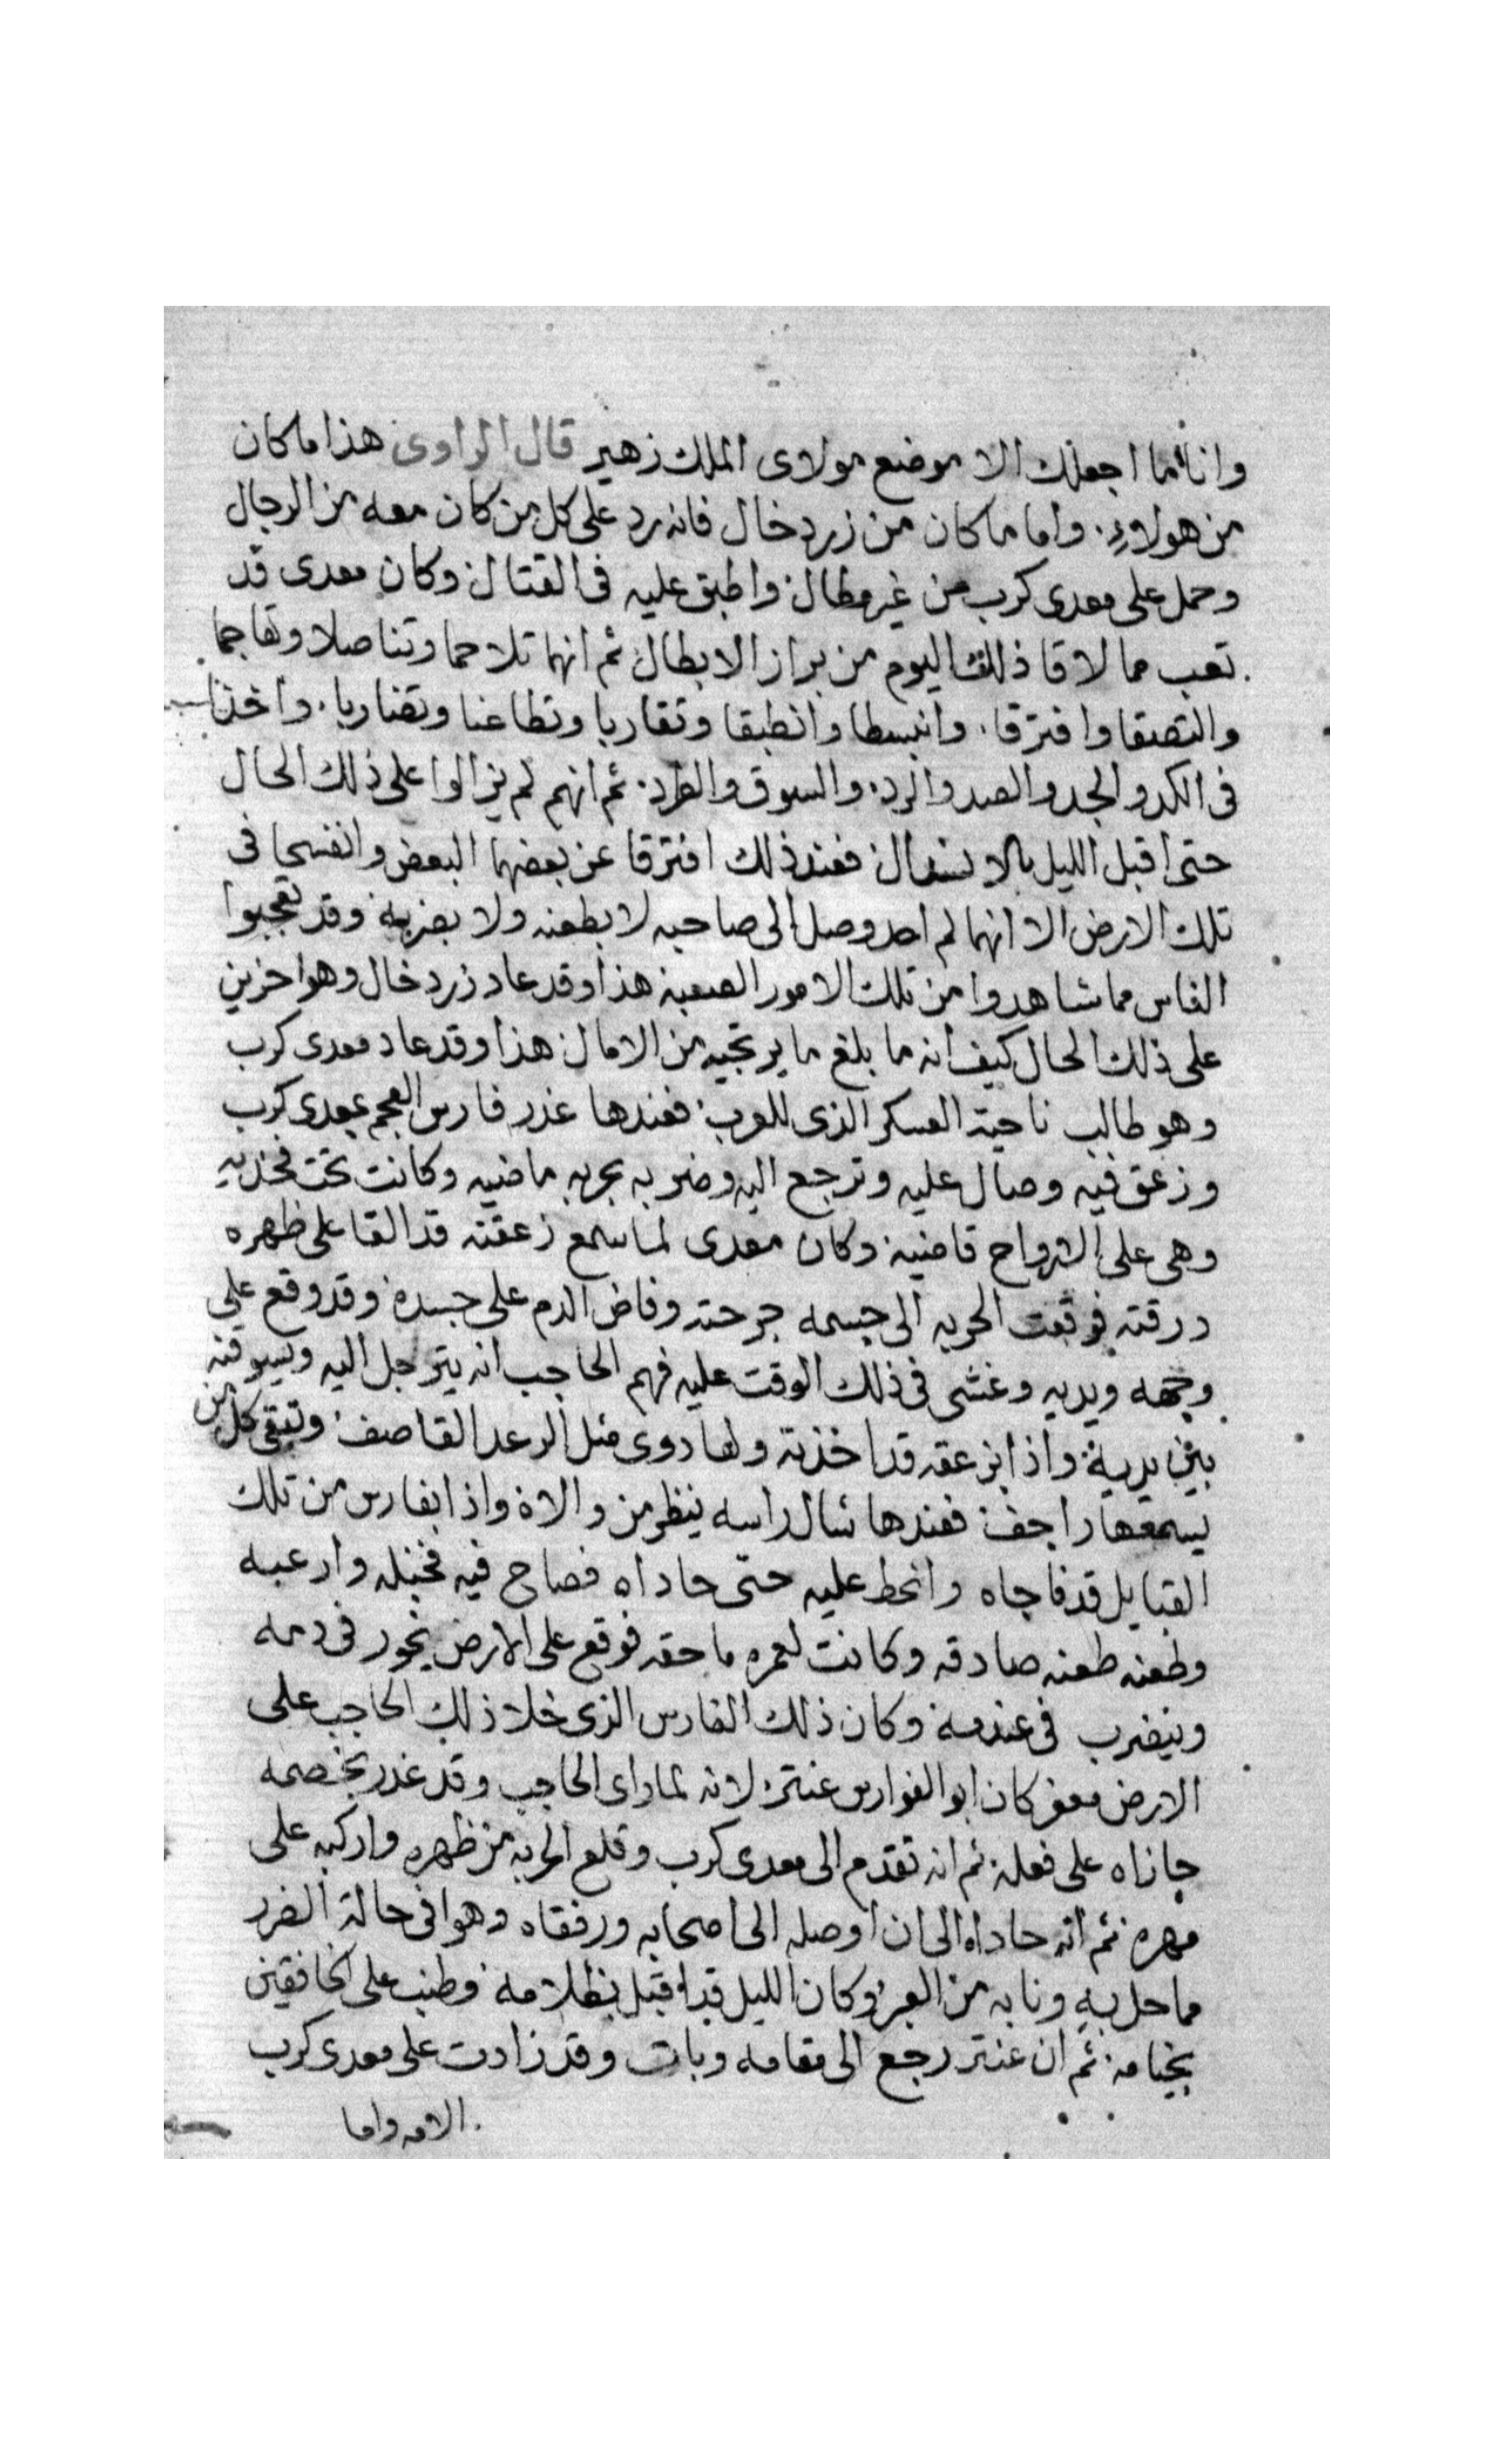 وانا ما اجعلك الا موضع مولاى الملك زهير قال الراوى هذا ما كان
من هولاء. واما ما كان من زردخال فانه رد على كل من كان معه من الرجال
وحمل على معدى كرب من غير مطال. واطبق عليه فى القتال وكان معدى قد
تعب مما لاقا ذلك اليوم من براز الابطال ثم انهما تلاحما وتناصلا وتهاجما
والتصقا وافترقا. وانبسطا وانطبقا وتقاربا وتطاعنا وتضاربا. واخذا
فى الكد والجد والصد والرد. والسوق والطرد. ثم انهم لم يزالوا على ذلك الحال
حتى اقبل الليل بالانسدال فعند ذلك افترقا عن بعضهما البعض وانفسحا فى
تلك الارض الا انهما لم احد وصل الى صاحبه لا بطعنه ولا بضربه وقد تعجبوا
الناس مما شاهدوا من تلك الامور الصعبة هذا وقد عاد زردخال وهوا حزين
على ذلك الحال كيف انه ما بلغ ما يرتجيه من الامال هذا وقد عاد معدى كرب
وهو طالب ناحية العسكر الذى للعرب. فعندها غدر فارس العجم بمعدى كرب
وزعق فيه وصال عليه وترجع اليه وضربه بحربه ماضيه وكانت تحت فخذيه
وهى على الارواح قاضيه. وكان معدى لما سمع زعقته قد القا على ظهره
درقته فوقعت الحربه الى جسمه جرحته وفاض الدم على جسده وقد وقع على
وجهه ويديه وغشى فى ذلك الوقت عليه فهم الحاجب انه يترجل اليه ويسوقه
بين يديه. واذا بزعقه قد اخذته ولها دوى مثل الرعد القاصف. وتبقى كل من
يسمعها راجف. فعندها شال راسه ينظر من والاه واذا بفارس من تلك
القبايل قد فاجاه وانحط عليه حتى حاداه فصاح فيه فخبله وارعبه
وطعنه طعنه صادقه وكانت لعمره ماحقه فوقع على الارض يخور فى دمه
وينضرب فى عندمه وكان ذلك الفارس الذى خلا ذلك الحاجب على
الارض معفر كان ابو الفوارس عنتر. لانه لما راى الحاجب وقد غدر بخصمه
جازاه على فعله. ثم انه تقدم الى معدى كرب وقلع الحربه من ظهره واركبه على
مهره ثم انه حاداه الى ان اوصله الى اصحابه ورفقاه وهوا فى حالة الضرر
مما حل به ونابه من العبر وكان الليل قد اقبل بظلامه وطنب على الخافقين
بخيامه. ثم ان عنتر رجع الى مقامه وبات وقد زادت على معدى كرب
الامه واما